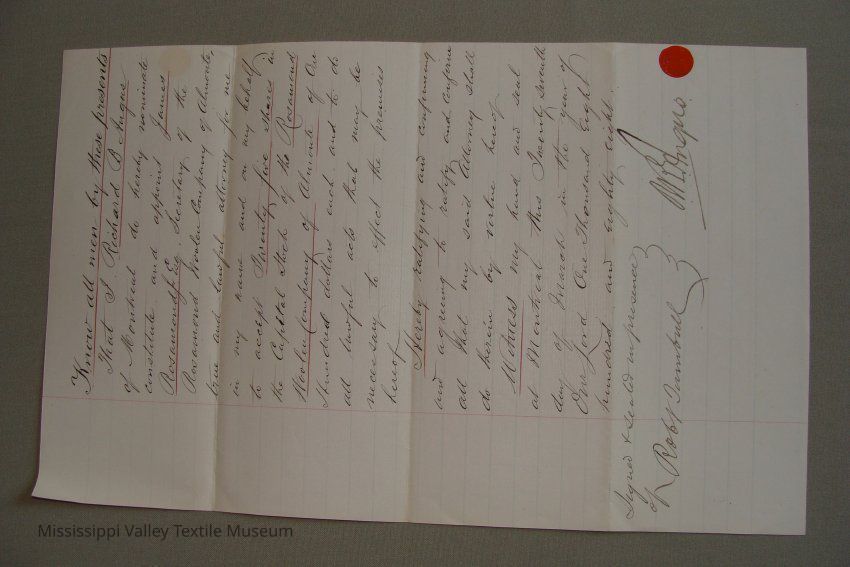 Know all men by these presents
That I Richard B Angus
of Montreal do hereby nominate
constitute and appoint James
Rosamond Esq. Secretary of the
Rosamond Woolen Company of Almonte,
true and lawful attorney for me
in my name and on my behalf
to accept Twenty five shares in
the Capital Stock of the Rosamond
Woolen Company of Almonte of One
Hundred dollars each and to do
all lawful acts that may be
necessary to effect the premises
hereof
Hereby ratifying and confirming
and agreeing to ratify and confirm
all that my said Attorney shall
do herein by virtue hereof
Witness my hand and seal
at Montreal this Twenty seventh
day of March in the year of
Our Lord One Thousand Eight
hundred and eighty eight.
Signed & Sealed in presence
of Robt Turnbull
R B Angus
Mississippi Valley Textile Museum